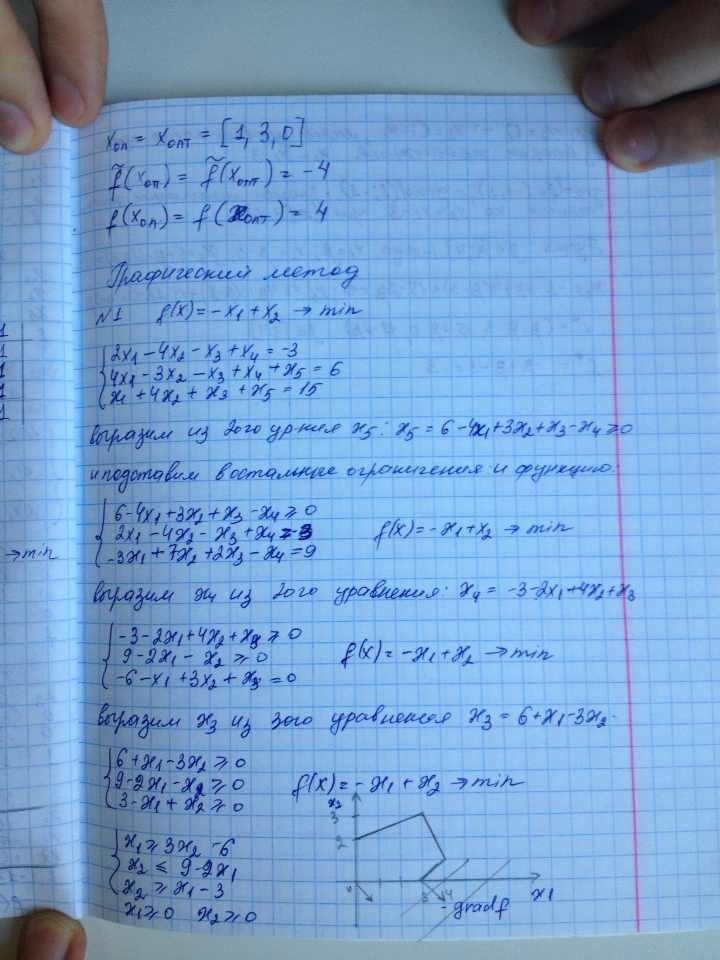 xоп = xопт = [1, 3, 0]
f̃(xоп) = f̃(xопт) = -4
f(xоп) = f(xопт) = 4
Графический метод
N1 f(x) = -x1 + x2 → min
2x1 - 4x2 - x3 + x4 = -3
4x1 - 3x2 - x3 + x4 + x5 = 6
x1 + 4x2 + x3 + x5 = 15
выразим из 2ого ур-ния x5: x5 = 6 - 4x1 + 3x2 + x3 - x4 ≥ 0
и подставим в остальные ограничения и функцию:
6 - 4x1 + 3x2 + x3 - x4 ≥ 0
2x1 - 4x2 - x3 + x4 = -3 f(x) = -x1 + x2 → min
-3x1 + 7x2 + 2x3 - x4 = 9
→ min
выразим x4 из 2ого уравнения: x4 = -3 - 2x1 + 4x2 + x3
-3 - 2x1 + 4x2 + x3 ≥ 0
9 - 2x1 - x2 ≥ 0 f(x) = -x1 + x2 → min
-6 - x1 + 3x2 + x3 = 0
выразим x3 из 3ого уравнения x3 = 6 + x1 - 3x2.
6 + x1 - 3x2 ≥ 0
9 - 2x1 - x2 ≥ 0 f(x) = -x1 + x2 → min
3 - x1 + x2 ≥ 0
x1 ≥ 3x2 - 6
x2 ≤ 9 - 2x1
x2 ≥ x1 - 3
x1 ≥ 0 x2 ≥ 0
x2
3
2
0
3
4
x1
- grad f
1
1
1
1
1